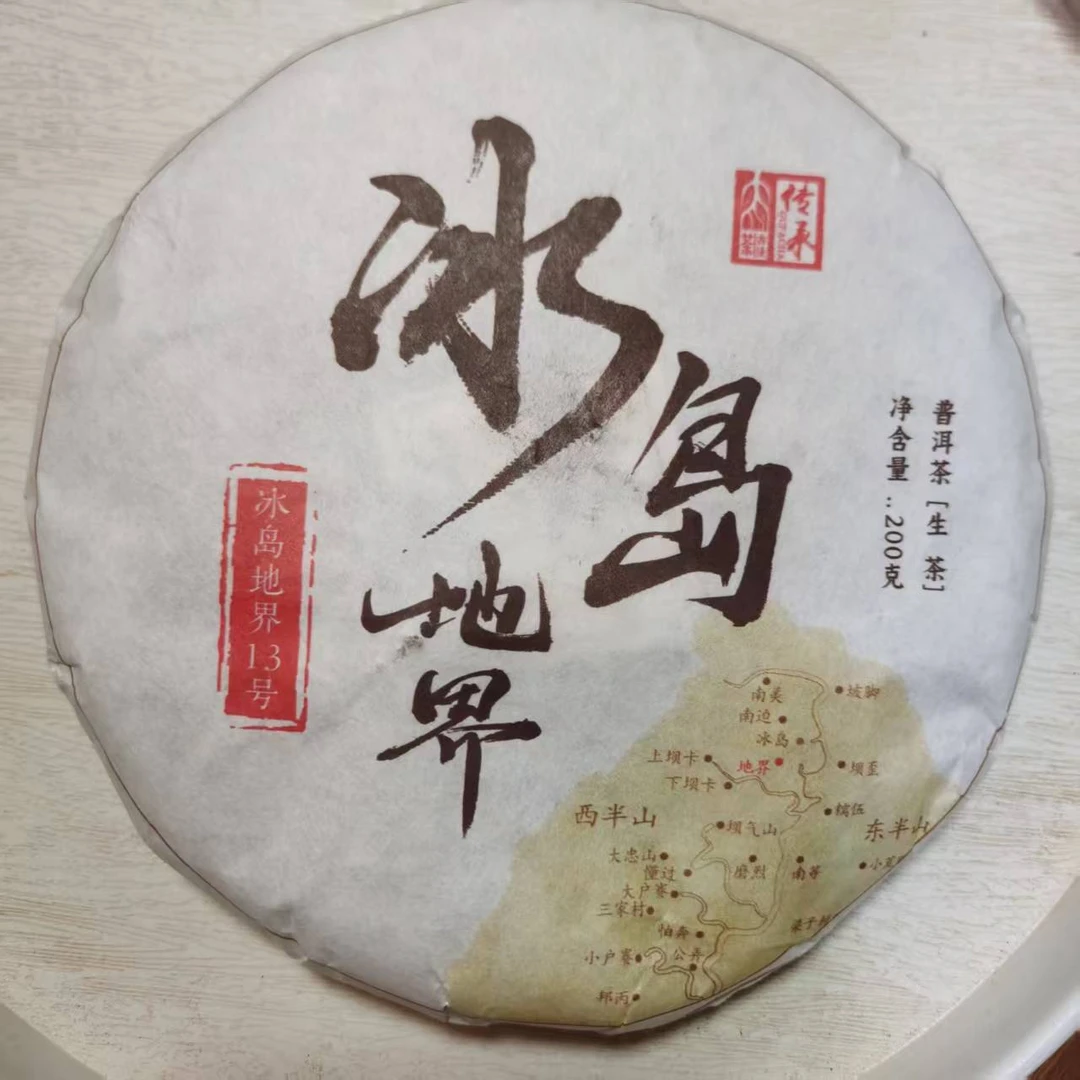 冰岛
地界
传承
普洱茶［生 茶］
净含量：200克
冰岛地界13号
南美
坡脚
南迫
冰岛
上坝卡
地界
坝歪
下坝卡
糯伍
西半山
坝气山
东半山
大忠山
懂过
磨烈
南等
大户赛
三家村
怕奔
小户赛
公弄
邦丙